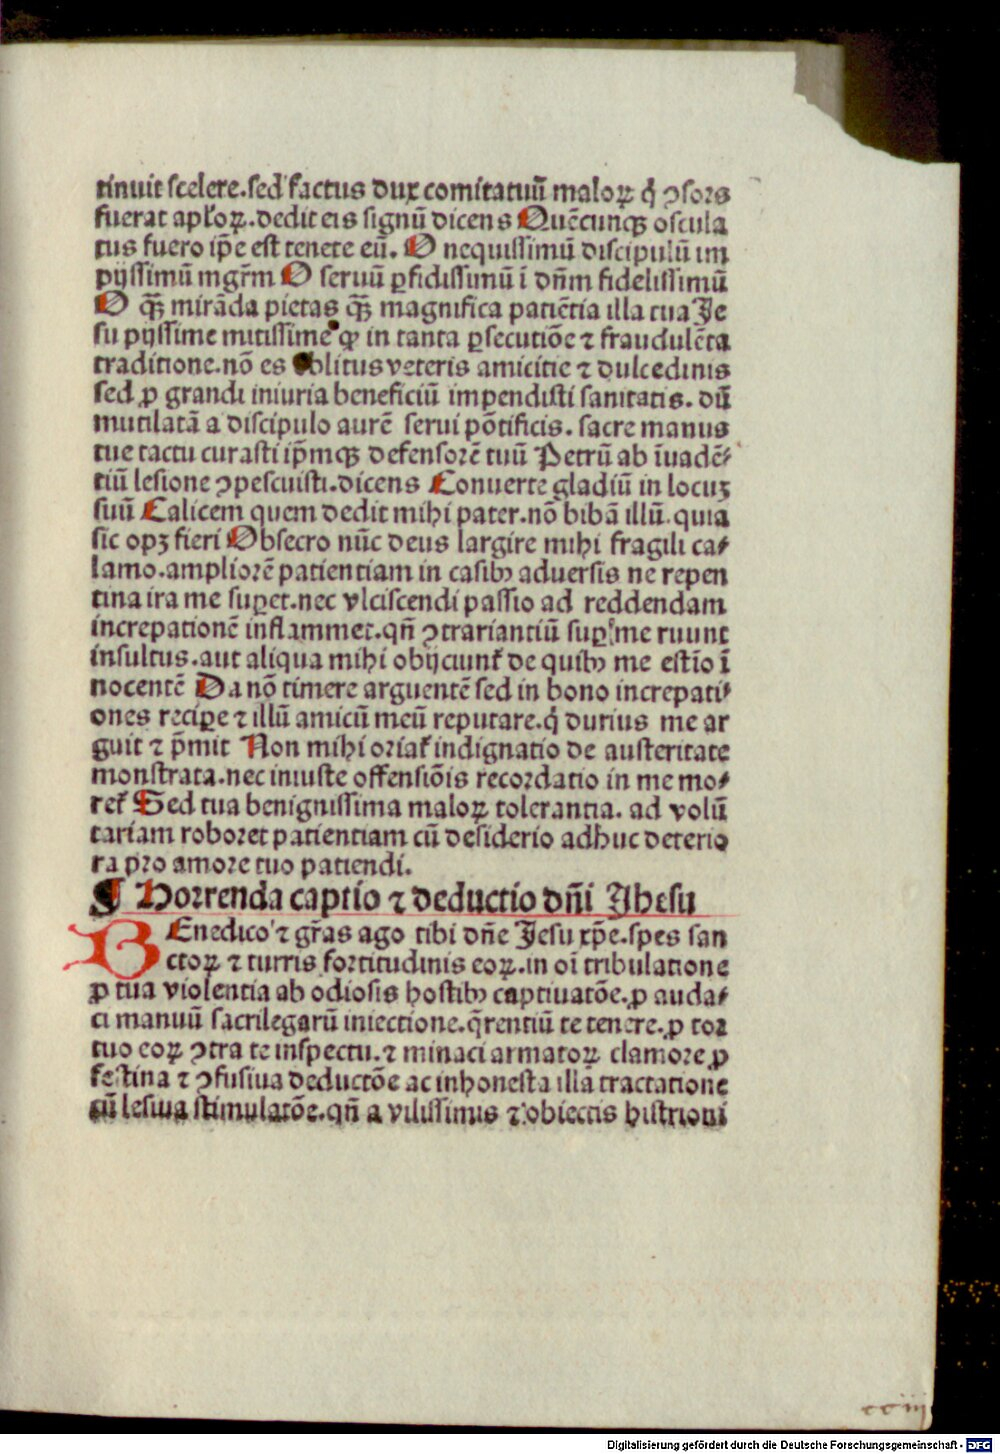 tinuit scelere.sed factus dux comitatuū maloꝝ q̇ ꝯsors
fuerat apl'oꝝ.dedit eis signū dicens Quēcunqꝫ oscula
tus fuero ip̄e est tenete eū. O nequissimū discipulū im
pijssimū mgr̄m O seruū ꝑfidissimū ī dn̄m fidelissimū
O qꝫ̄ mirāda pietas qꝫ̄ magnifica patiētia illa tua Je
su pijssime mitissime ꝙ in tanta ꝑsecutiōe ⁊ fraudulēta
traditione.nō es oblitus veteris amicitie ⁊ dulcedinis
sed ꝓ grandi iniuria beneficiū impendisti sanitatis. dū
mutilatā a discipulo aurē serui pōtificis. sacre manus
tue tactu curasti ip̄mqꝫ defensorē tuū Petrū ab īuadē⸗
tiū lesione ꝯpescuisti.dicens Conuerte gladiū in locuꝫ
suū Calicem quem dedit mihi pater.nō bibā illū.quia
sic opꝫ fieri Obsecro nūc deus largire mihi fragili ca⸗
lamo.ampliorē patientiam in casibꝫ aduersis ne repen
tina ira me suꝑet.nec vlciscendi passio ad reddendam
increpationē inflammet.qn̄ ꝯtrariantiū suꝑ me ruunt
insultus.aut aliqua mihi obijciunt' de quibꝫ me estīo ī
nocentē Da nō timere arguentē sed in bono increpati⸗
ones reciꝑe ⁊ illū amicū meū reputare.q̇ durius me ar
guit ⁊ p̄mit Non mihi oriat' indignatio de austeritate
monstrata.nec iniuste offensiōis recordatio in me mo⸗
ret' Sed tua benignissima maloꝝ tolerantia. ad volū
tariam roboret patientiam cū desiderio adhuc deterio
ra pro amore tuo patiendi.
¶ Horrenda captio ⁊ deductio dn̄i Jhesu
BEnedico ⁊ gr̄as ago tibi dn̄e Jesu xp̄e.spes san
ctoꝝ ⁊ turris fortitudinis eoꝝ.in oī tribulatione
ꝓ tua violentia ab odiosis hostibꝫ captiuatōe.ꝓ auda⸗
ci manuū sacrilegarū iniectione.q̄rentiū te tenere.ꝓ tor
tuo eoꝝ ꝯtra te inspectu.⁊ minaci armatoꝝ clamore ꝓ
festina ⁊ ꝯfusiua deductōe ac inhonesta illa tractatione
cū lesiua stimulatōe.qn̄ a vilissimis ⁊ obiectis histrioni
cciiij
Digitalisierung gefördert durch die Deutsche Forschungsgemeinschaft - DFG